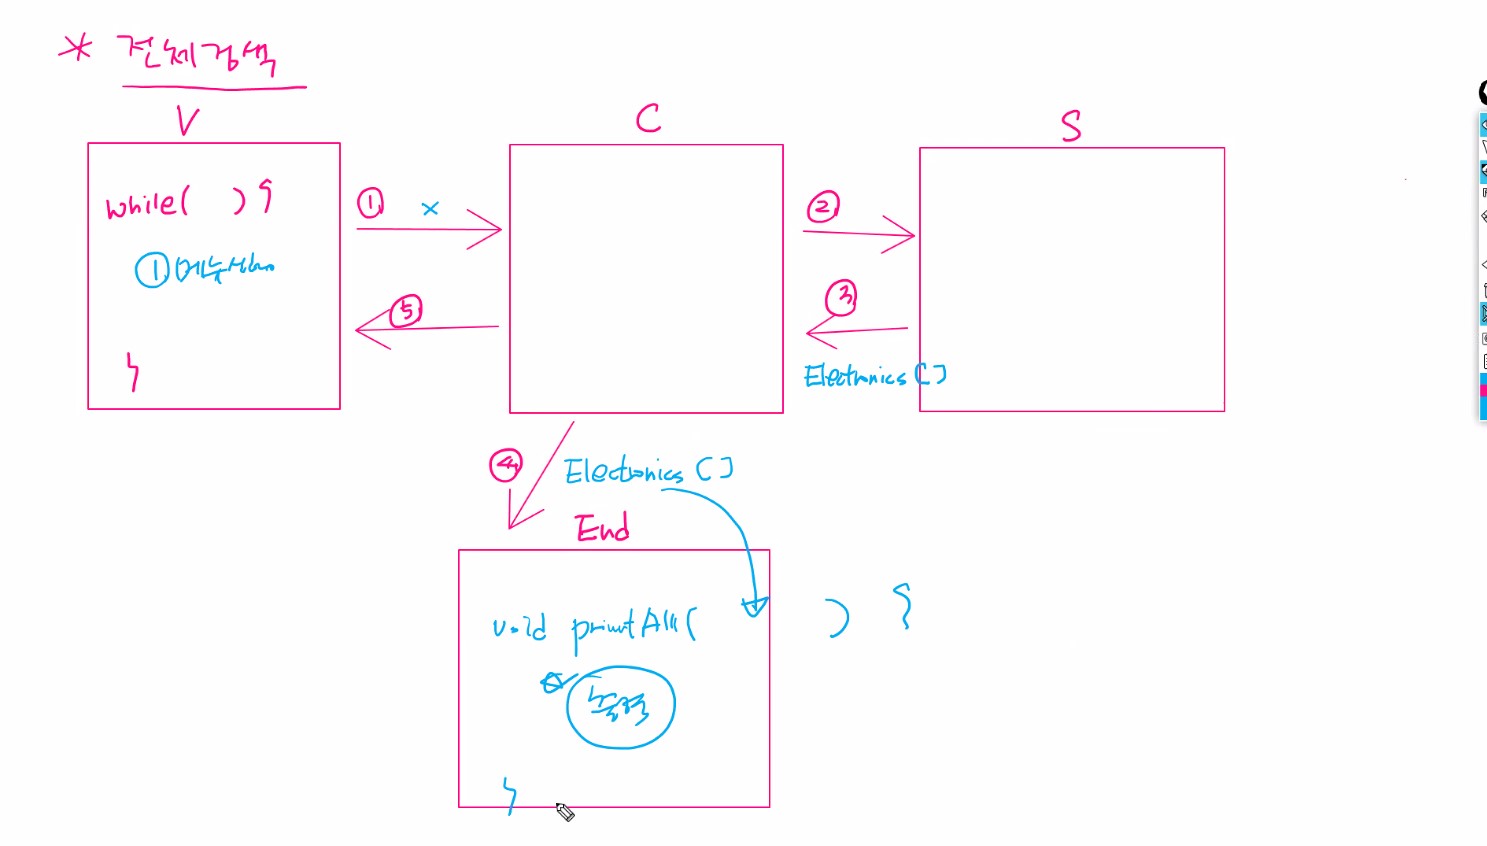 * 전체검색
V
C
S
while( ) {
① 메뉴
}
① x
②
③
⑤
Electronics []
④
Electronics []
End
void printAll( ) {
출력
}